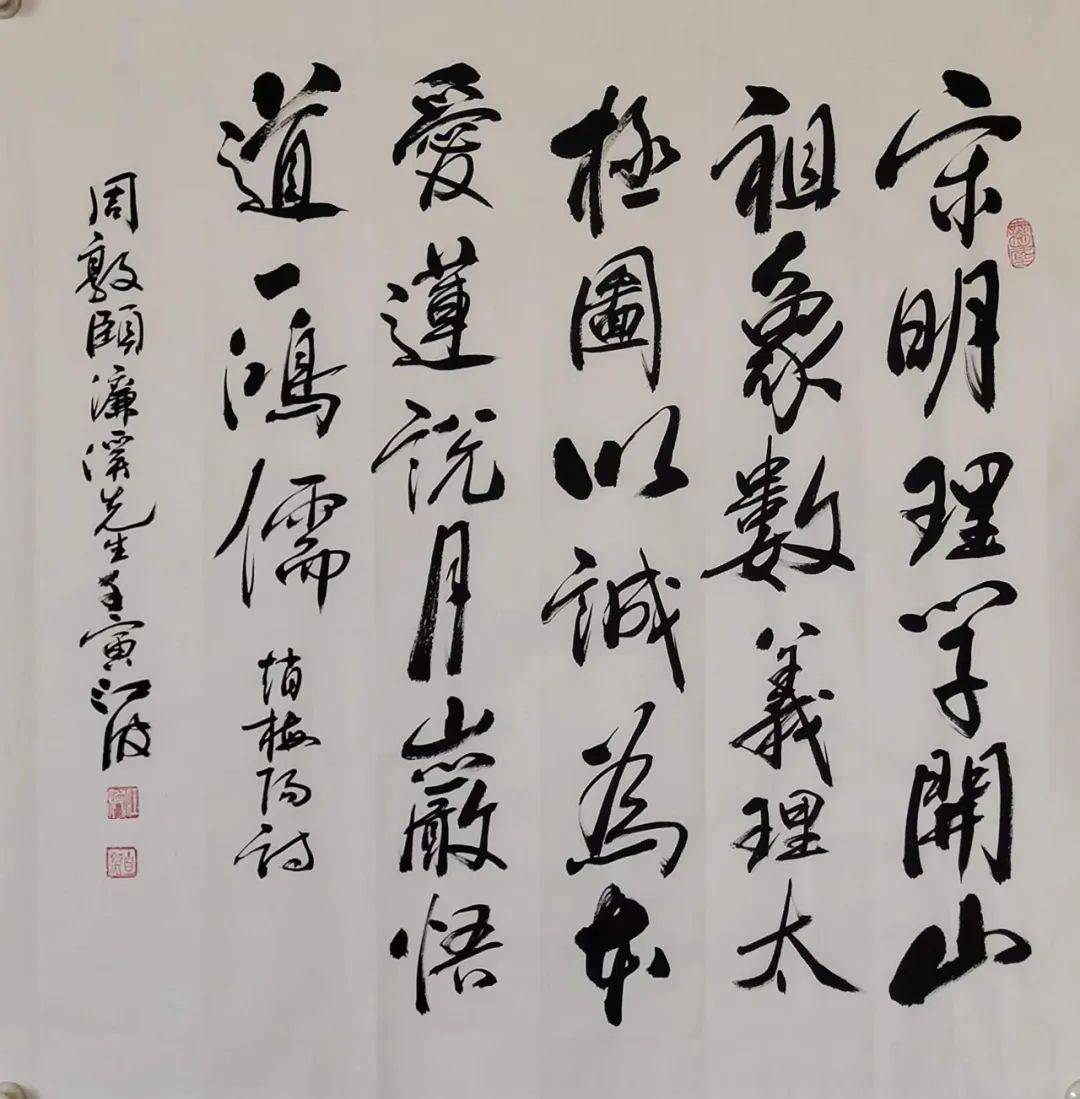 宋明理学開山
祖象數義理太
極圖以誠為本
愛蓮説月巖悟
道一鴻儒
趙梅陽詩
周敦頤濂溪先生壬寅江波